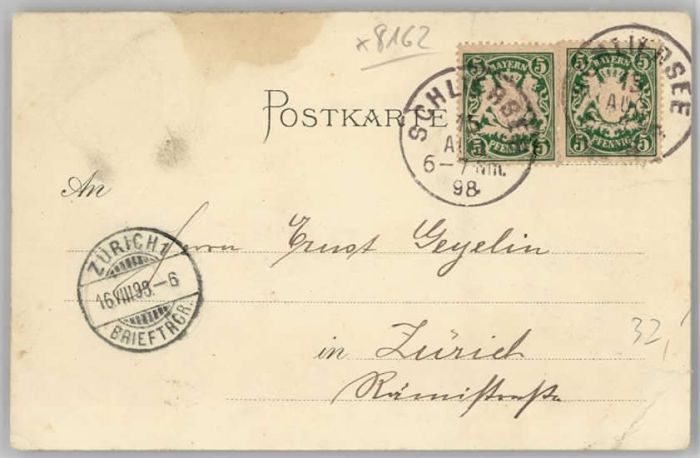 x8162
BAYERN
5 5
5 PFENNIG 5
BAYERN
5 5
5 PFENNIG 5
SCHLIERSEE
15
AUG
6-7 Nm.
98
SCHLIERSEE
AUG
POSTKARTE
An
Herrn Ernst Geyelin
ZÜRICH 1
16.VIII.98.-6
BRIEFTRGR.
32,-
in Zürich
Rämistraße